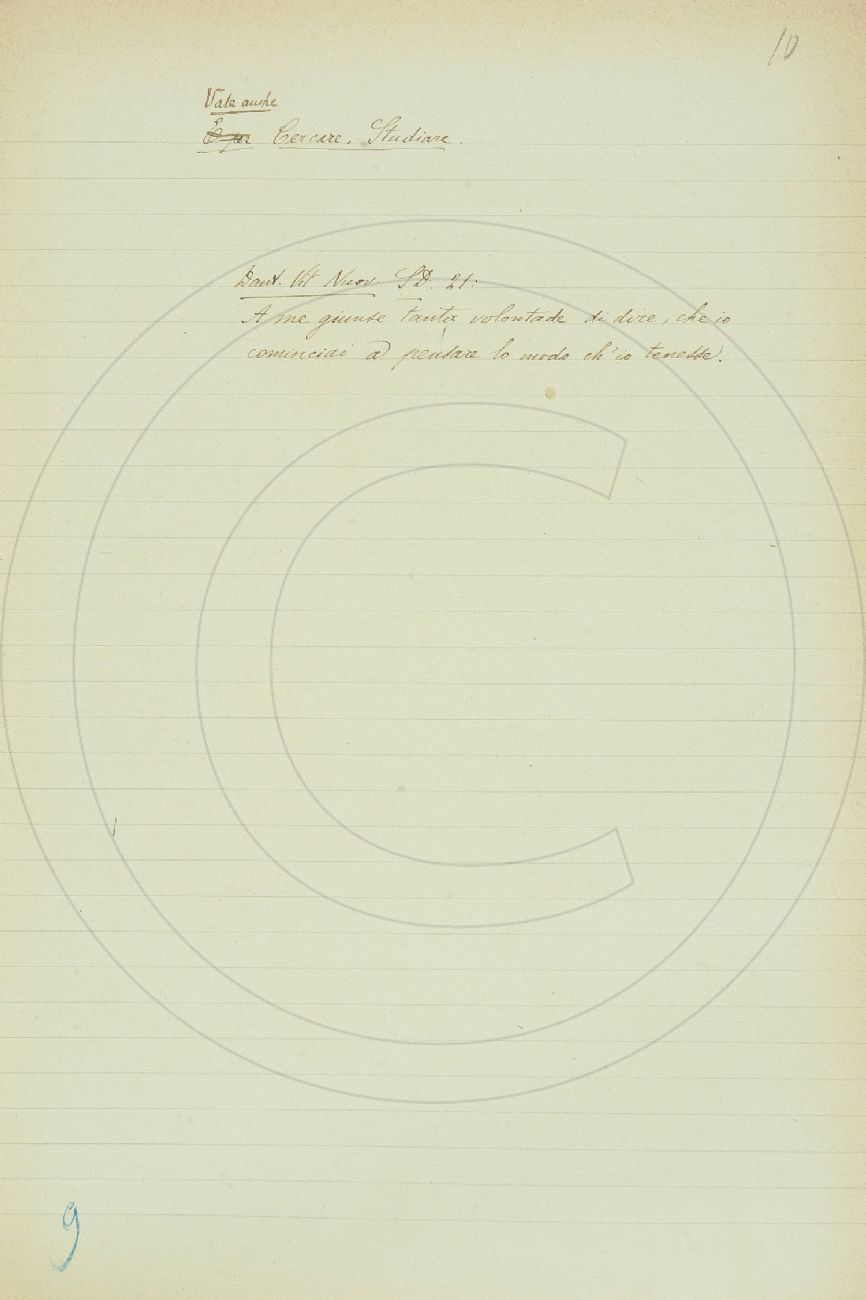 10
Vale anche
E per Cercare, Studiare.
Dant. Vit. Nuov. SD. 21:
A me giunse tanta volontade di dire, che io
cominciai a pensare lo modo ch'io tenesse.
9